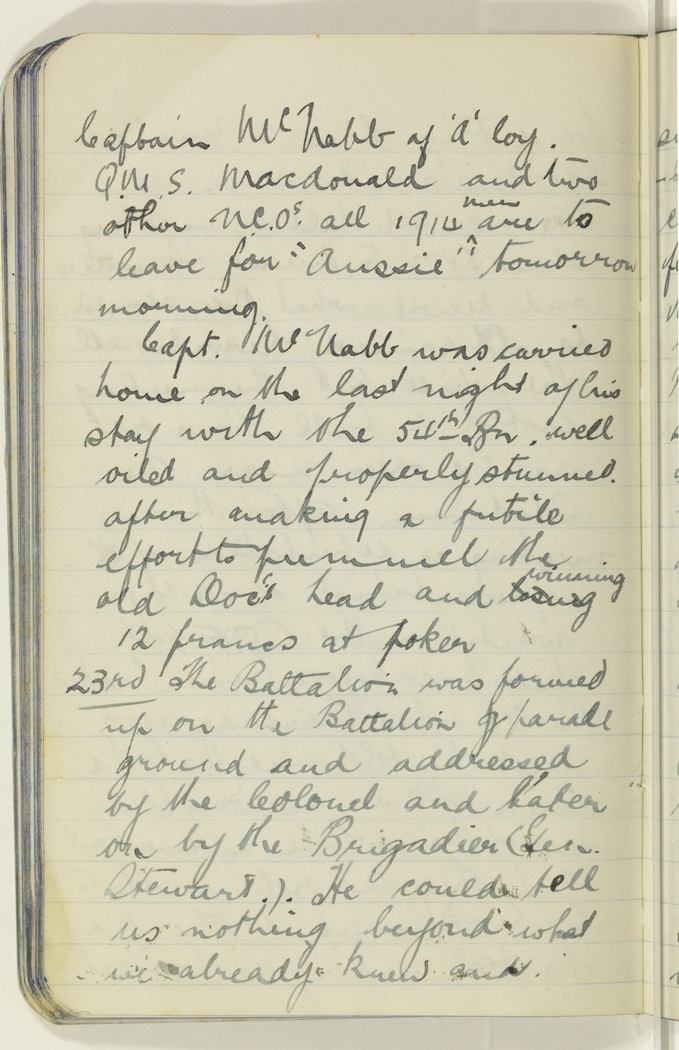 Captain McNabb of 'A' Coy.
Q.M.S. Macdonald and two
other N.C.Os. all 1914 men are to
leave for "Aussie" tomorrow
morning.
Capt. McNabb was carried
home on the last night of his
stay with the 54th Bn. well
oiled and properly stunned.
after making a futile
effort to pummel the
old Doc's head and winning
12 francs at poker
23rd The Battalion was formed
up on the Battalion parade
ground and addressed
by the Colonel and later
on by the Brigadier (Gen.
Stewart.). He could tell
us nothing beyond what
we already knew and.